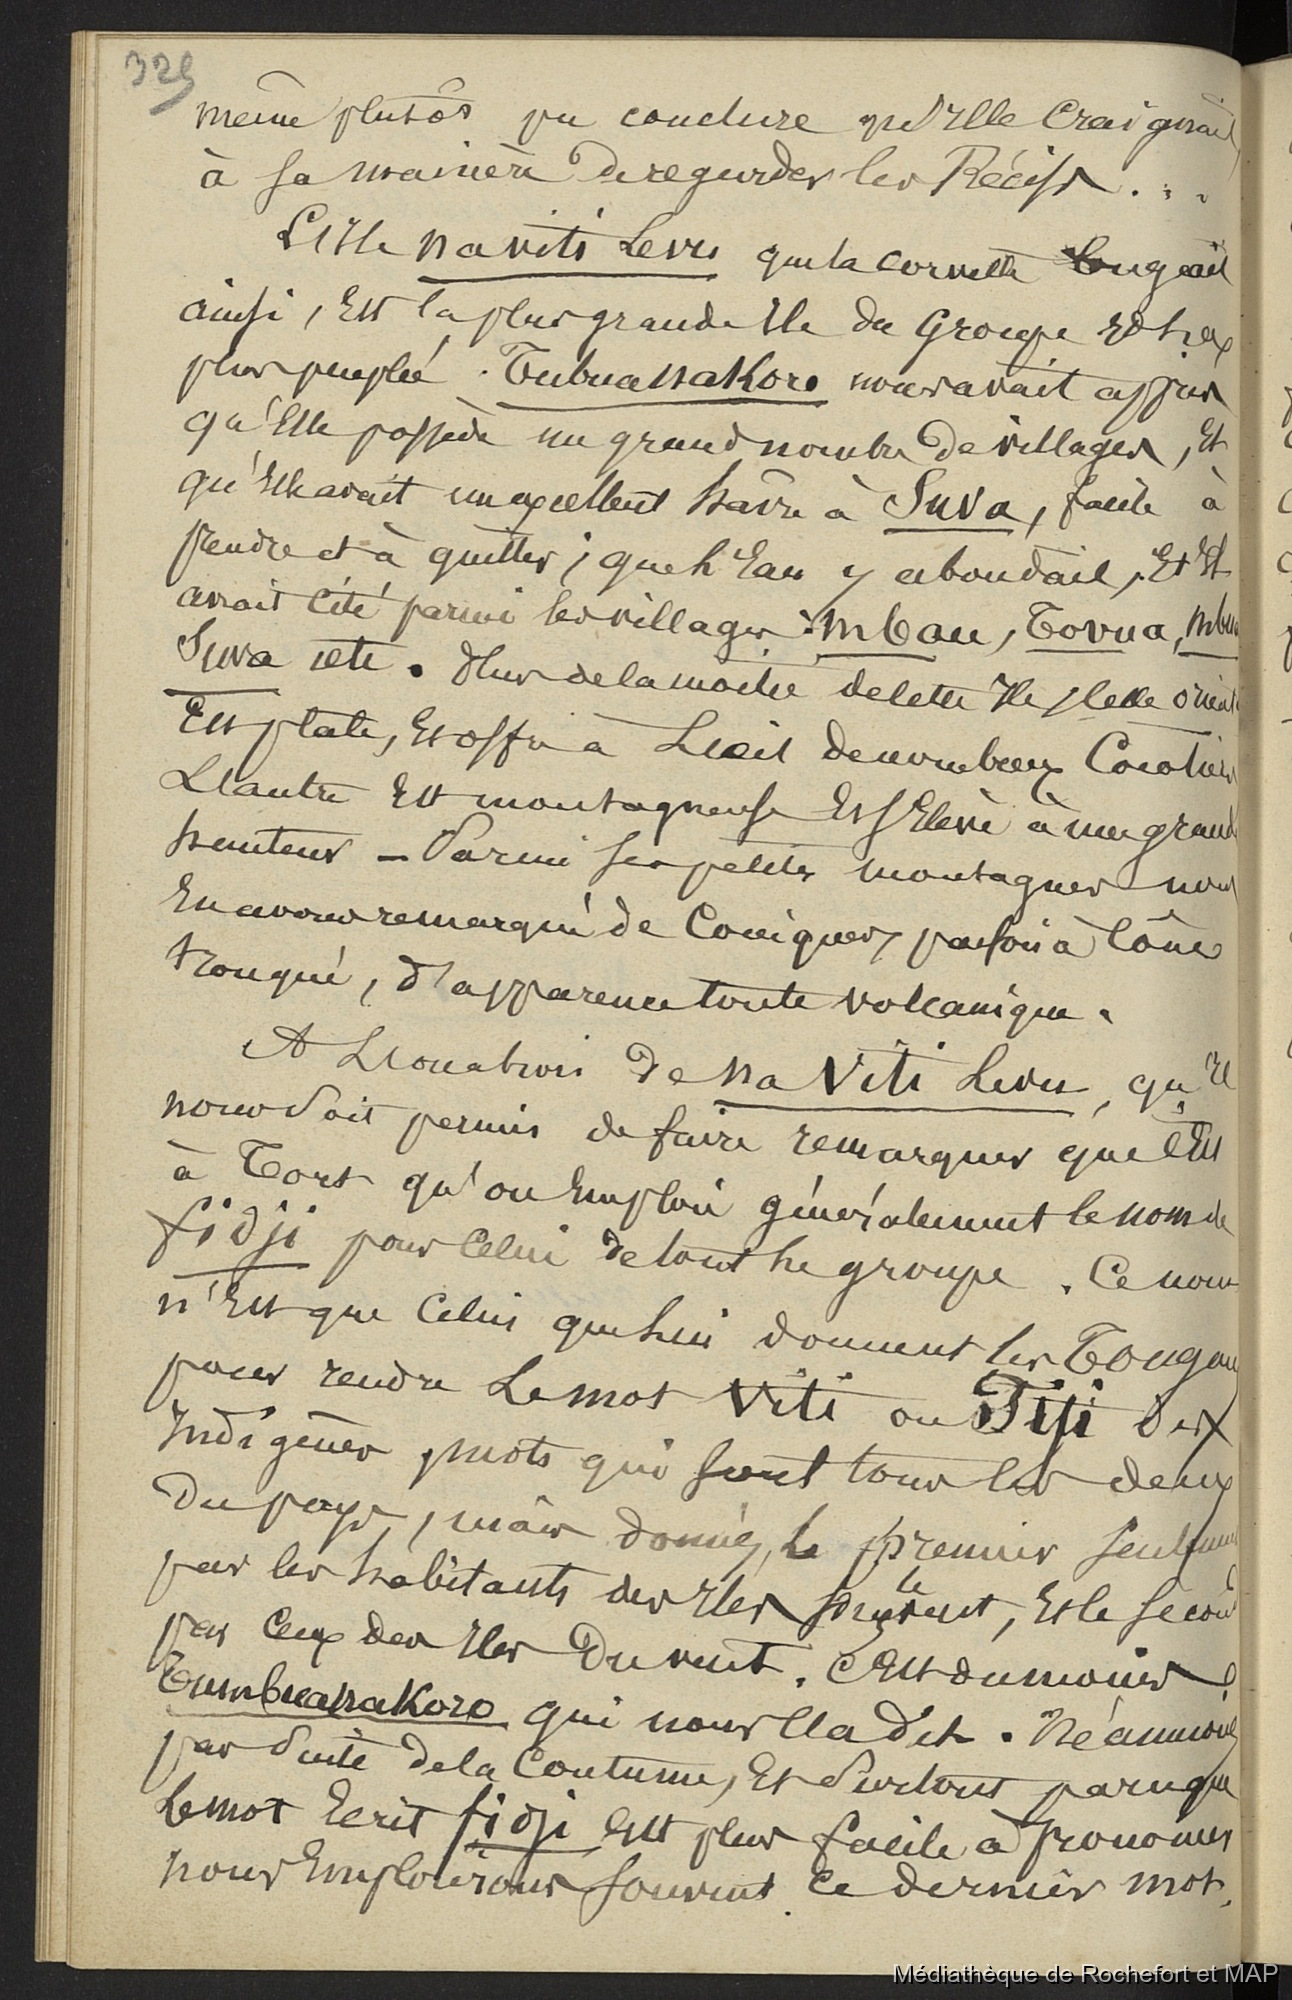 325
même plutôt pu conclure qu'Elle Craignait
à sa manière de regarder les Récifs . . .
L'Ile na viti Levu que la corvette longeait
ainsi, Est la plus grande Ile du Groupe et la
plus peuplée. Tubuanakoro nous avait appris
qu'Elle possède un grand nombre de villages, Et
qu'Elle avait un excellent hâvre à Suva, facile à
prendre et à quitter ; que l'Eau y abondait, Et Il
avait cité parmi les villages : mbau, Tovua, mbua
Suva etc. Plus de la moitié de cette Ile, celle orientale
Est plate, Et offre à L'oeil de nombreux Cocotiers
L'autre Est montagneuse Et s'Elève à une grande
hauteur – Parmi ses petites montagnes nous
En avons remarqué de Coniques, parfois à Cône
tronqué, d'apparence toute volcanique.
A L'occasion de na Viti Levu, qu'Il
nous soit permis de faire remarquer que c'Est
à Tort qu'on Emploie généralement le nom de
fidji pour Celui de tout le groupe. Ce nom
n'Est que Celui que lui donnent les Tongas
pour rendre Le mot Viti ou Fiji des
Indigènes, mots qui sont tous les deux
Du pays, mais donnés, le premier seulement
par les habitants des Iles sous le vent, Et le second
par ceux des Iles Du vent. C'Est du moins
Tumbuanakoro qui nous l'a dit. Néanmoins
par suite de la Coutume, Et surtout parce que
Le mot Ecrit fidji Est plus facile à prononcer
nous Emploierons souvent ce dernier mot.
Médiathèque de Rochefort et MAP